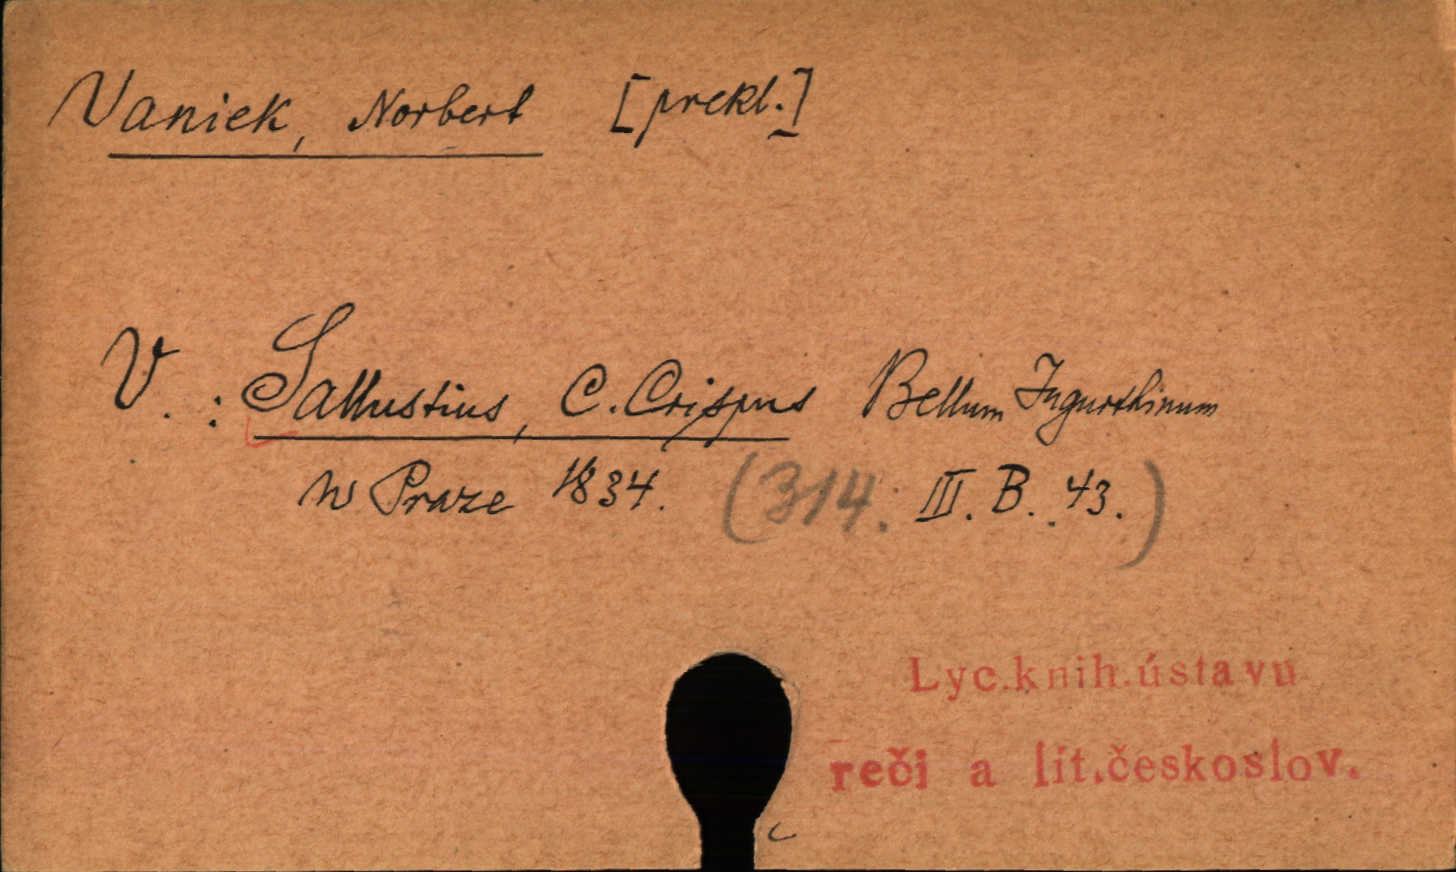 Vaniek, Norbert [prekl.]
V. : Sallustius, C. Crispus Bellum Jugurthinum
w Praze 1834. (314. III. B. 43.)
Lyc.knih.ústavu
reči a lit.českoslov.